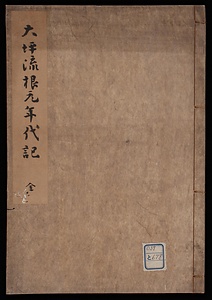 大坪流根元年代記
全